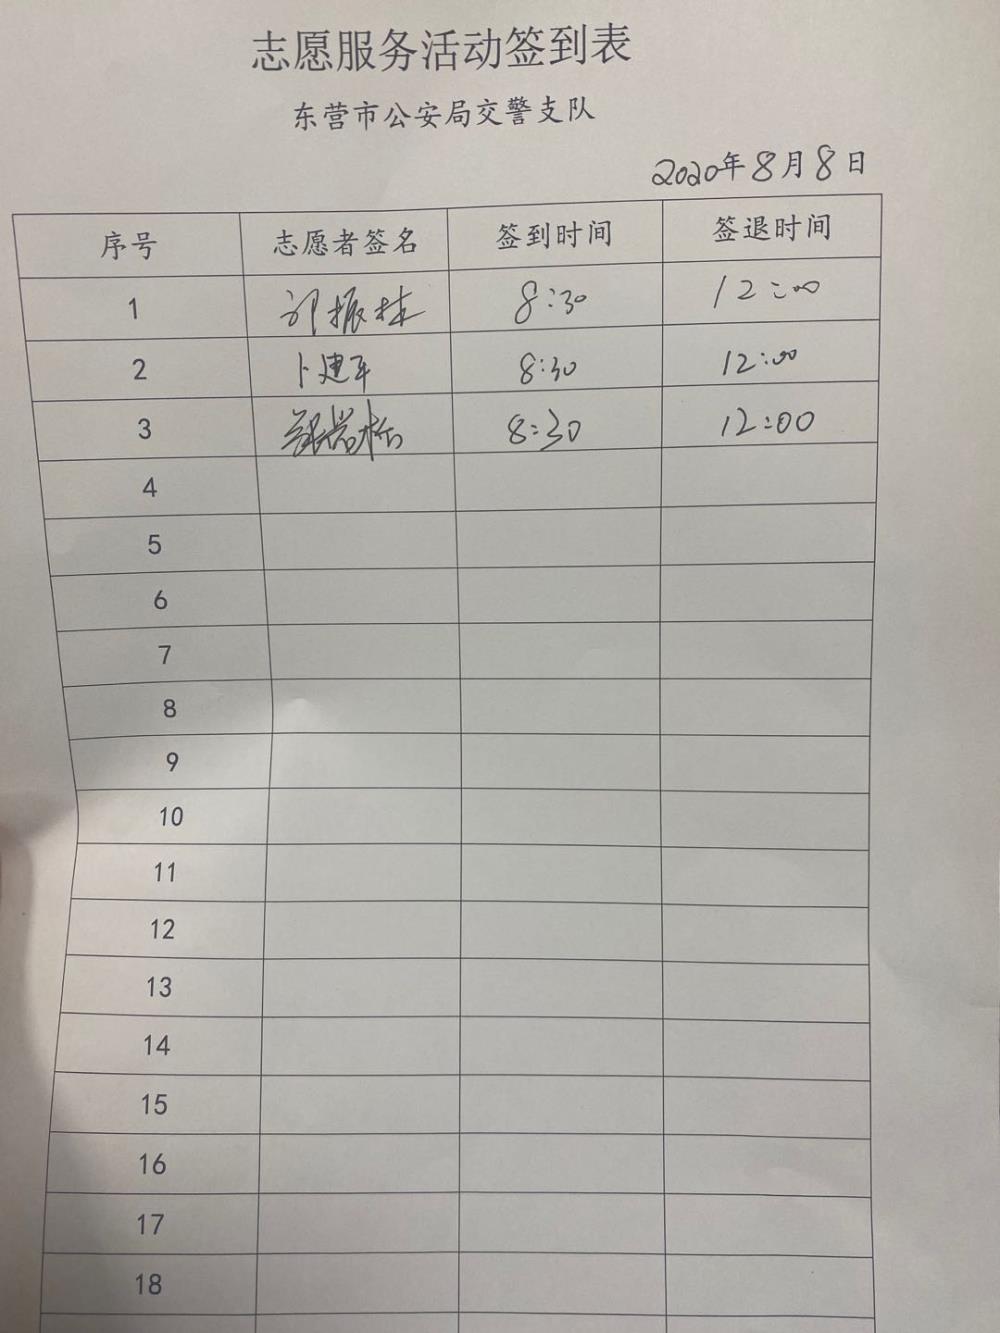 志愿服务活动签到表
东营市公安局交警支队
2020年8月8日
序号 志愿者签名 签到时间 签退时间
1 振林 8:30 12:00
2 卜建军 8:30 12:00
3 8:30 12:00
4
5
6
7
8
9
10
11
12
13
14
15
16
17
18